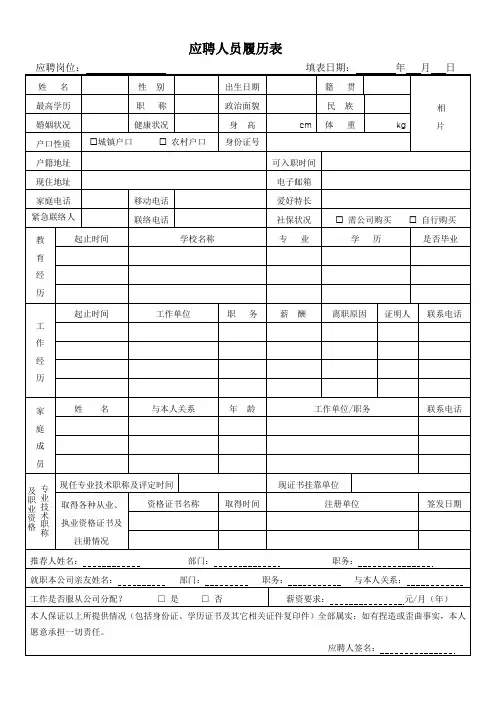 应聘人员履历表
应聘岗位： 填表日期： 年 月 日
姓 名 性 别 出生日期 籍 贯
最高学历 职 称 政治面貌 民 族 相
婚姻状况 健康状况 身 高 cm 体 重 kg 片
户口性质 □城镇户口 □ 农村户口 身份证号
户籍地址 可入职时间
现住地址 电子邮箱
家庭电话 移动电话 爱好特长
紧急联络人 联络电话 社保状况 □ 需公司购买 □ 自行购买
教育经历 起止时间 学校名称 专 业 学 历 是否毕业
工作经历 起止时间 工作单位 职 务 薪 酬 离职原因 证明人 联系电话
家庭成员 姓 名 与本人关系 年 龄 工作单位/职务 联系电话
专业技术职称及职业资格 现任专业技术职称及评定时间 现证书挂靠单位
取得各种从业、 资格证书名称 取得时间 注册单位 签发日期
执业资格证书及
注册情况
推荐人姓名： 部门： 职务：
就职本公司亲友姓名： 部门： 职务： 与本人关系：
工作是否服从公司分配？ □ 是 □ 否 薪资要求： 元/月（年）
本人保证以上所提供情况（包括身份证、学历证书及其它相关证件复印件）全部属实；如有捏造或歪曲事实，本人
愿意承担一切责任。
应聘人签名：